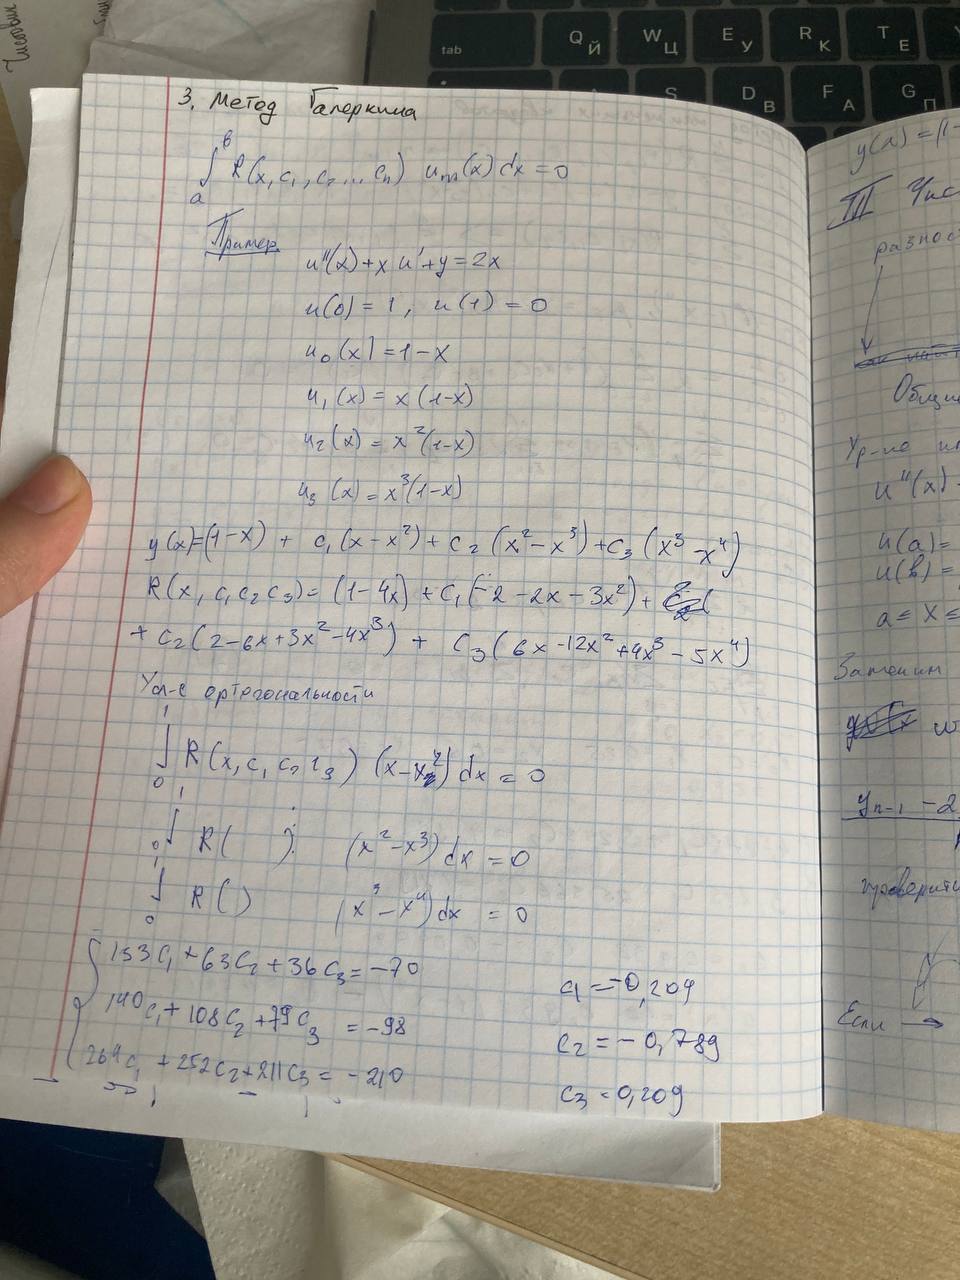 tab Q Й W Ц E У R К T Е
S D В F А G П
3. Метод Галеркина
∫ₐᵇ R(x, c₁, c₂ ... cₙ) uₘ(x) dx = 0
Пример
u''(x) + x u' + y = 2x
u(0) = 1, u(1) = 0
u₀(x) = 1-x
u₁(x) = x(1-x)
u₂(x) = x²(1-x)
u₃(x) = x³(1-x)
y(x) = (1-x) + c₁(x-x²) + c₂(x²-x³) + c₃(x³-x⁴)
R(x, c₁ c₂ c₃) = (1-4x) + c₁(-2-2x-3x²) +
+ c₂(2-6x+3x²-4x³) + c₃(6x-12x²+4x³-5x⁴)
Усл-е ортогональности
∫₀¹ R(x, c₁ c₂ c₃) (x-x²) dx = 0
∫₀¹ R( ) (x²-x³) dx = 0
∫₀¹ R( ) (x³-x⁴) dx = 0
153c₁ + 63c₂ + 36c₃ = -70
140c₁ + 108c₂ + 79c₃ = -98
264c₁ + 252c₂ + 211c₃ = -210
c₁ = -0,209
c₂ = -0,789
c₃ = 0,209
y(x) = (1-
III Чис
разнос
Общи
Ур-ие
u''(x) -
u(a) =
u(b) =
a ≤ x ≤
Заменим
yₙ₋₁ - 2
проверить
Если →